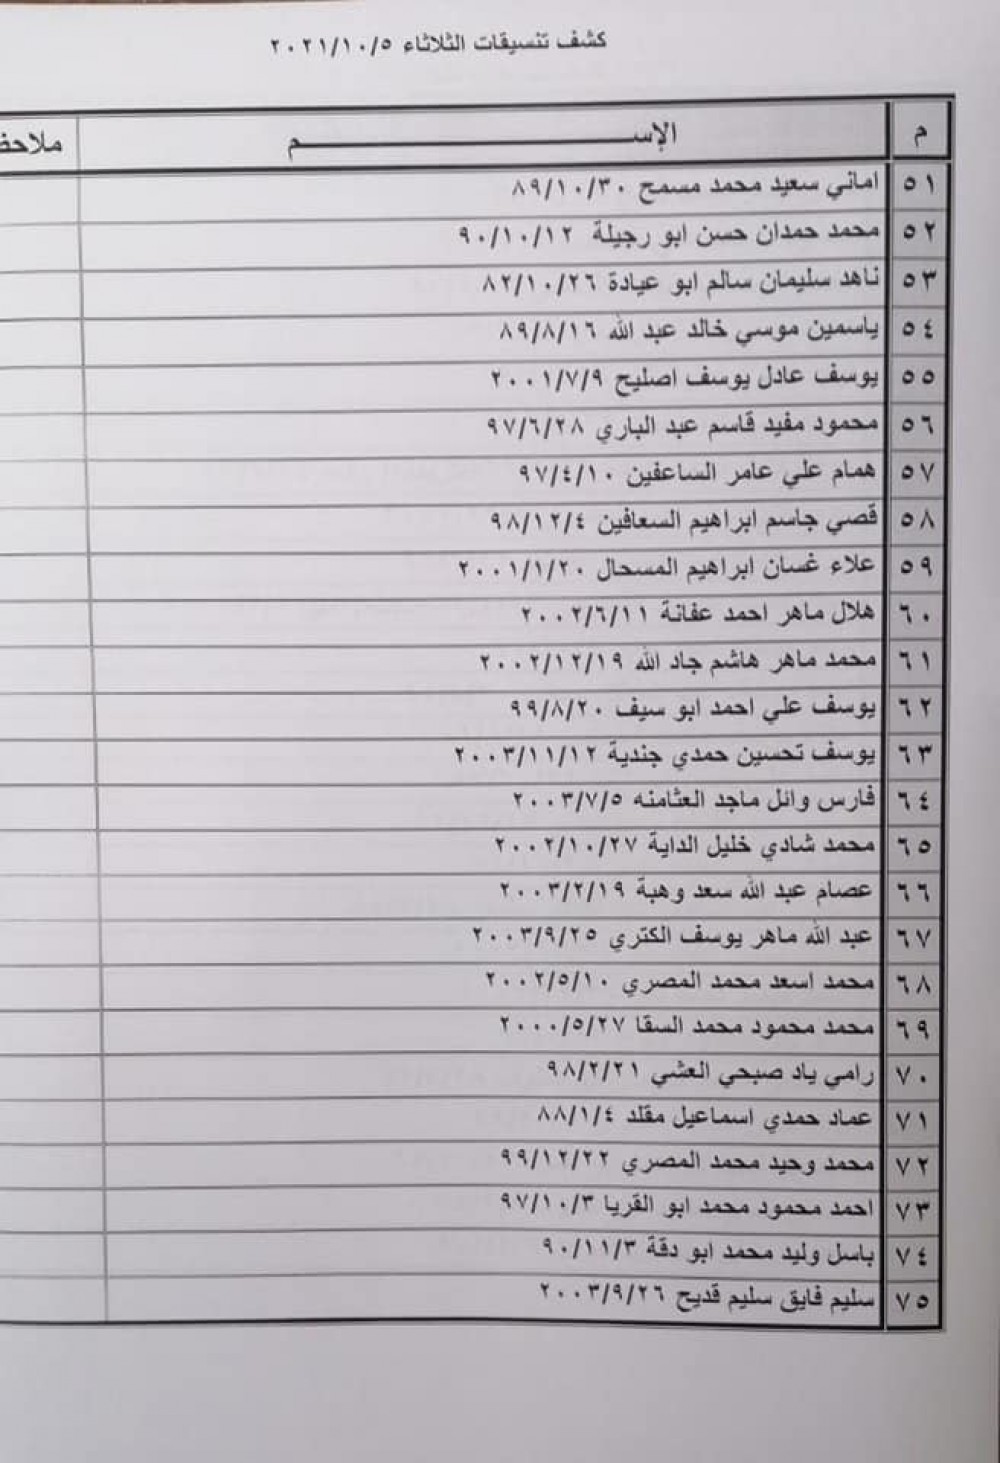 كشف تنسيقات الثلاثاء ٢٠٢١/١٠/٥
م الإســـــــــم ملاحظ
٥١ اماني سعيد محمد مسمح ٨٩/١٠/٣٠
٥٢ محمد حمدان حسن ابو رجيلة ٩٠/١٠/١٢
٥٣ ناهد سليمان سالم ابو عيادة ٨٢/١٠/٢٦
٥٤ ياسمين موسي خالد عبد الله ٨٩/٨/١٦
٥٥ يوسف عادل يوسف اصليح ٢٠٠١/٧/٩
٥٦ محمود مفيد قاسم عبد الباري ٩٧/٦/٢٨
٥٧ همام علي عامر الساعفين ٩٧/٤/١٠
٥٨ قصي جاسم ابراهيم السعافين ٩٨/١٢/٤
٥٩ علاء غسان ابراهيم المسحال ٢٠٠١/١/٢٠
٦٠ هلال ماهر احمد عفانة ٢٠٠٢/٦/١١
٦١ محمد ماهر هاشم جاد الله ٢٠٠٢/١٢/١٩
٦٢ يوسف علي احمد ابو سيف ٩٩/٨/٢٠
٦٣ يوسف تحسين حمدي جندية ٢٠٠٣/١١/١٢
٦٤ فارس وائل ماجد العثامنه ٢٠٠٣/٧/٥
٦٥ محمد شادي خليل الداية ٢٠٠٢/١٠/٢٧
٦٦ عصام عبد الله سعد وهبة ٢٠٠٣/٢/١٩
٦٧ عبد الله ماهر يوسف الكتري ٢٠٠٣/٩/٢٥
٦٨ محمد اسعد محمد المصري ٢٠٠٢/٥/١٠
٦٩ محمد محمود محمد السقا ٢٠٠٠/٥/٢٧
٧٠ رامي ياد صبحي العشي ٩٨/٢/٢١
٧١ عماد حمدي اسماعيل مقلد ٨٨/١/٤
٧٢ محمد وحيد محمد المصري ٩٩/١٢/٢٢
٧٣ احمد محمود محمد ابو القريا ٩٧/١٠/٣
٧٤ باسل وليد محمد ابو دقة ٩٠/١١/٣
٧٥ سليم فايق سليم قديح ٢٠٠٣/٩/٢٦